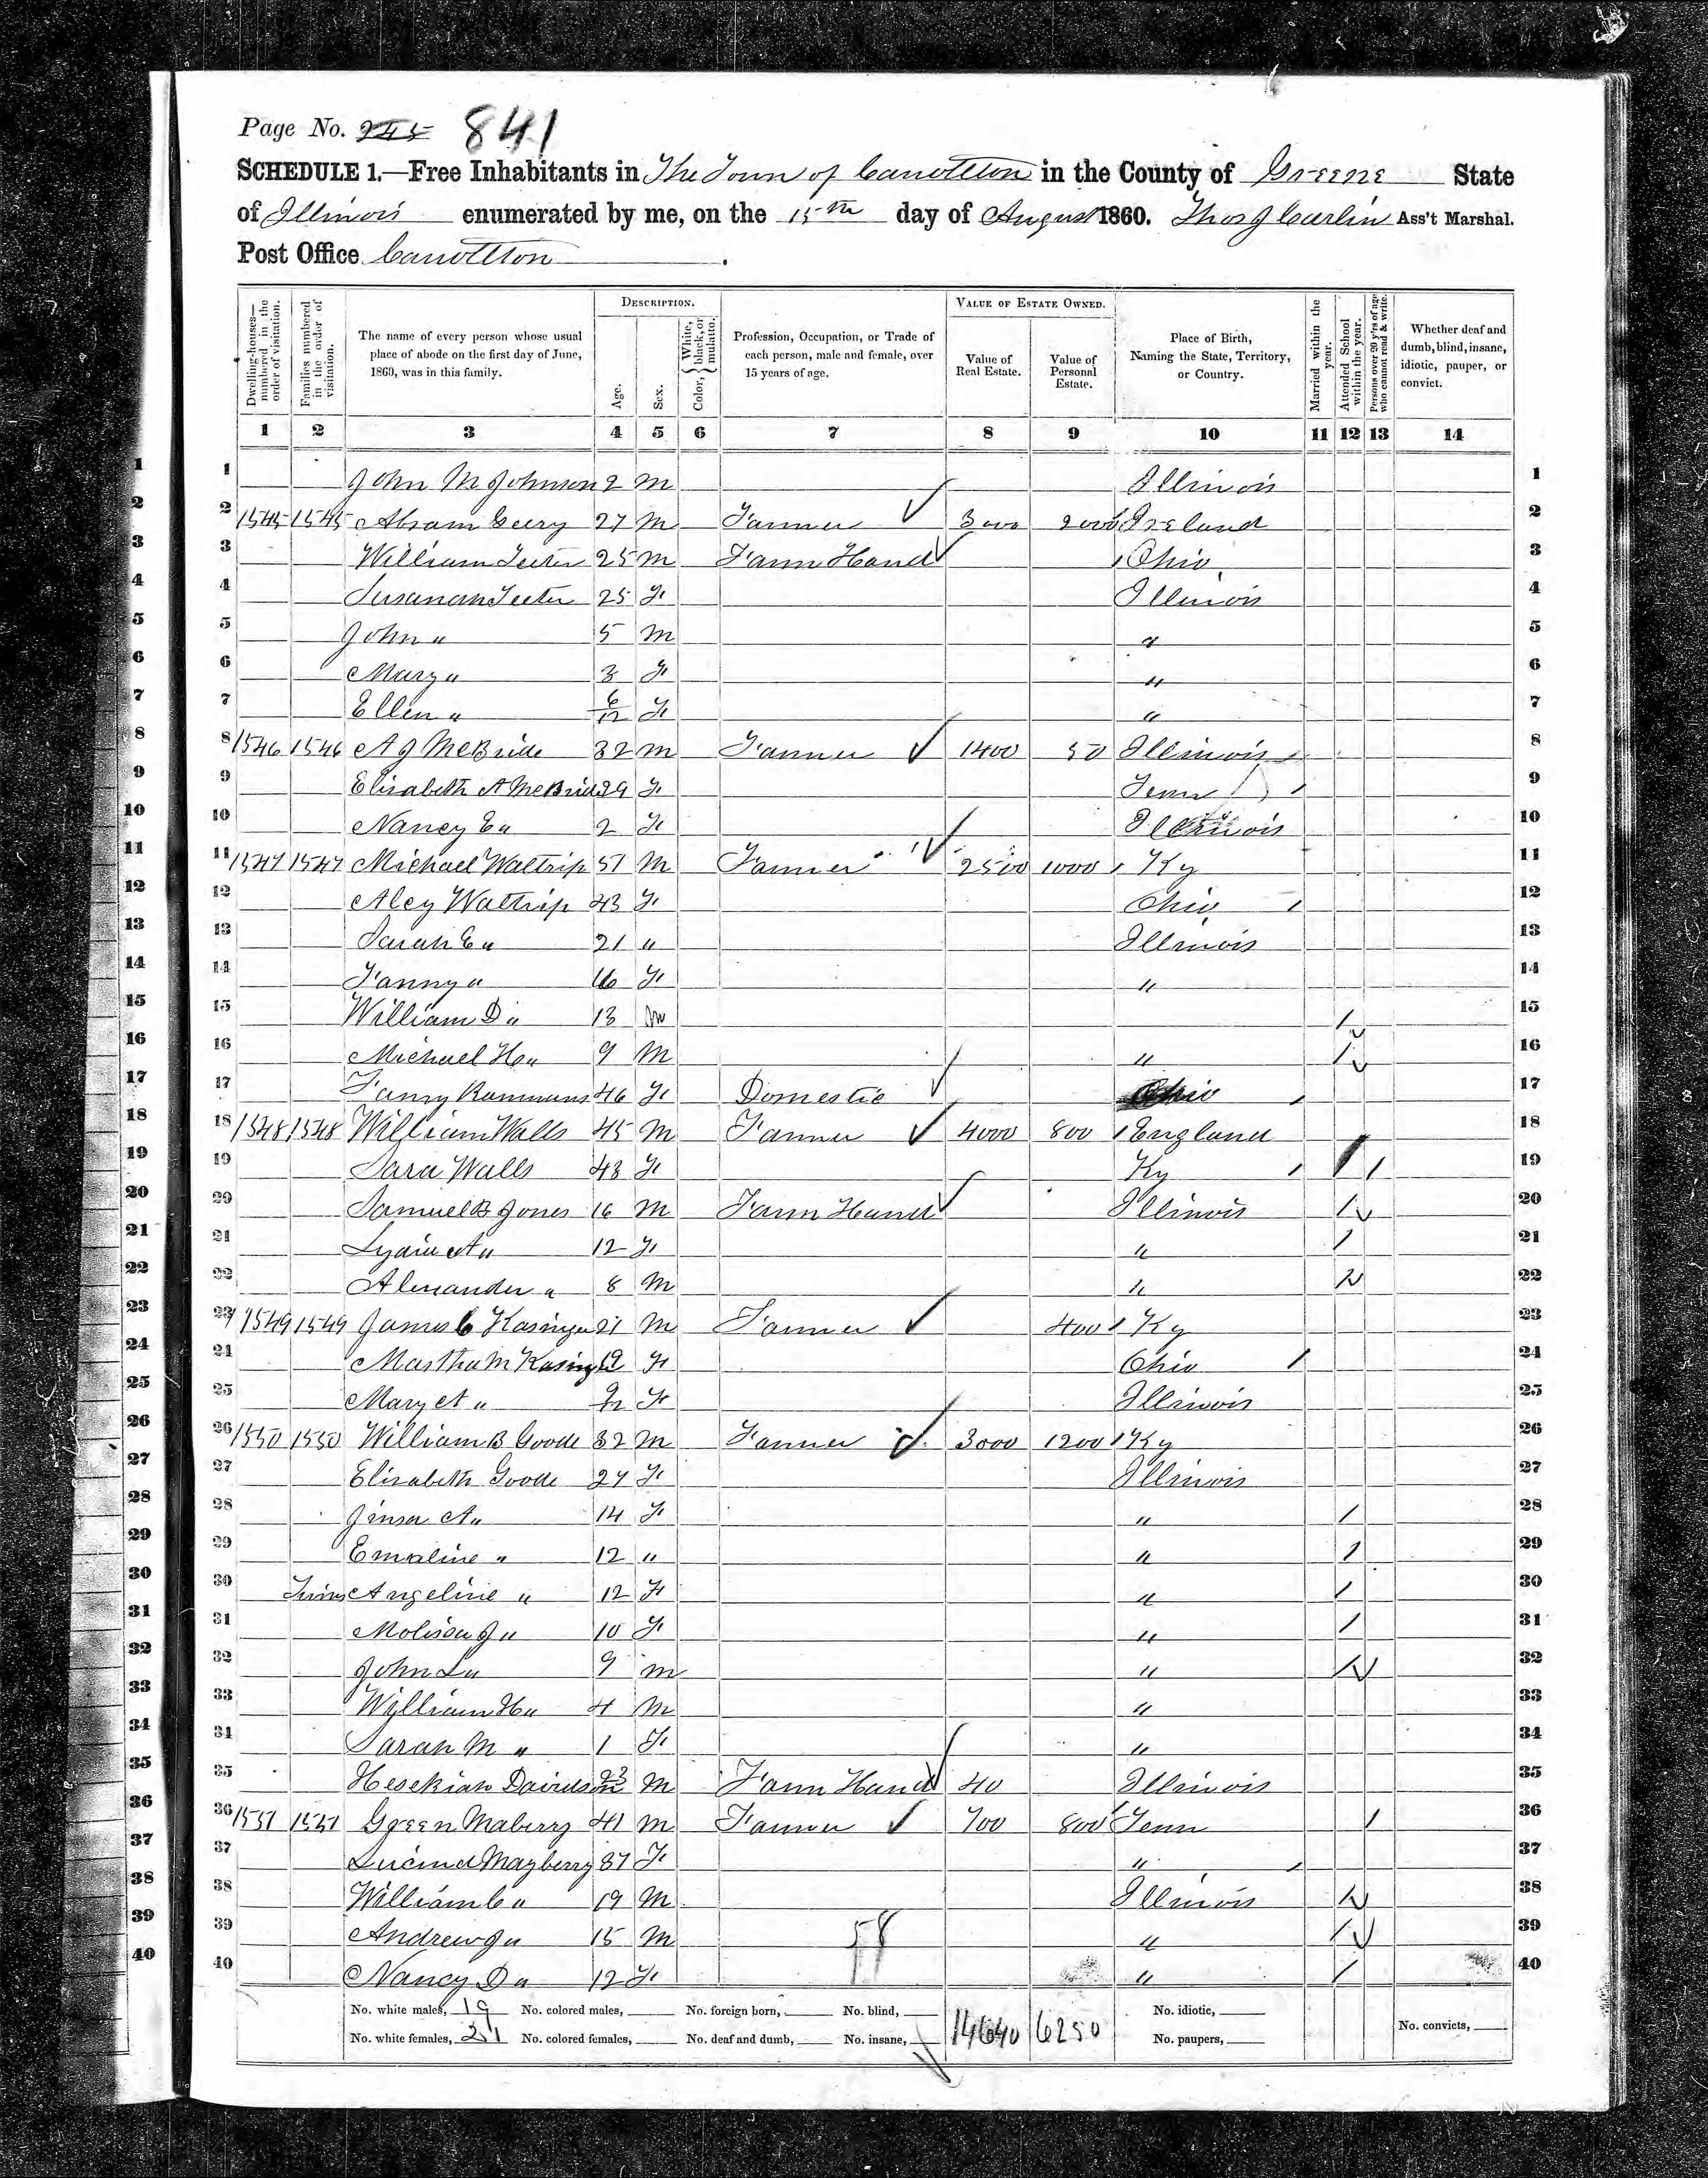 Page No. 245 841
SCHEDULE 1.—Free Inhabitants in The Town of Carrollton in the County of Greene State
of Illinois enumerated by me, on the 15th day of August 1860. Thos J Carlin Ass't Marshal.
Post Office Carrollton.
DESCRIPTION. VALUE OF ESTATE OWNED.
Dwelling-houses— numbered in the order of visitation.
Families numbered in the order of visitation.
The name of every person whose usual place of abode on the first day of June, 1860, was in this family.
Age.
Sex.
Color, { White, black, or mulatto.
Profession, Occupation, or Trade of each person, male and female, over 15 years of age.
Value of Real Estate.
Value of Personal Estate.
Place of Birth, Naming the State, Territory, or Country.
Married within the year.
Attended School within the year.
Persons over 20 y'rs of age who cannot read & write.
Whether deaf and dumb, blind, insane, idiotic, pauper, or convict.
1 2 3 4 5 6 7 8 9 10 11 12 13 14
1 John M Johnson 2 M Illinois 1
2 1545 1545 Abram Geery 27 M Farmer 3000 2000 Ireland 2
3 William Teeter 25 M Farm Hand Ohio 3
4 Susanah Teeter 25 F Illinois 4
5 John " 5 M " 5
6 Mary " 3 F " 6
7 Ellen " 6/12 F " 7
8 1546 1546 A J McBride 32 M Farmer 1400 50 Illinois 8
9 Elisabeth A McBride 29 F Tenn 9
10 Nancy E " 2 F Illinois 10
11 1547 1547 Michael Waltrip 51 M Farmer 2500 1000 Ky 11
12 Aley Waltrip 43 F Ohio 12
13 Sarah E " 21 " Illinois 13
14 Fanny " 16 F " 14
15 William D " 13 M / 15
16 Michael H " 9 M " / 16
17 Fanny 46 F Domestic Ohio 17
18 1548 1548 William Walls 45 M Farmer 4000 800 England 18
19 Sara Walls 43 F Ky / 19
20 Samuel B Jones 16 M Farm Hand Illinois / 20
21 Lydia A " 12 F " / 21
22 Alexander " 8 M " / 22
23 1549 1549 James C Kasinger 21 M Farmer 400 Ky 23
24 Martha M Kasinger 19 F Ohio 24
25 Mary A " F Illinois 25
26 1550 1550 William B Goode 32 M Farmer 3000 1200 Ky 26
27 Elisabeth Goode 27 F Illinois 27
28 Jinsa A " 14 F " / 28
29 Emaline " 12 " " / 29
30 Twins Angeline " 12 F " / 30
31 Molissa J " 10 F " / 31
32 John L " 9 M " / 32
33 William H " 4 M " 33
34 Sarah M " 1 F " 34
35 Hesekiah Davidson 23 M Farm Hand 40 Illinois 35
36 1551 1551 Green Maberry 41 M Farmer 700 800 Tenn / 36
37 Lucinda Mayberry 37 F " 37
38 William C " 19 M Illinois / 38
39 Andrew J " 15 M " / 39
40 Nancy D " 12 F " / 40
58
No. white males, 19 No. colored males, No. foreign born, No. blind, 14640 6250 No. idiotic,
No. white females, 21 No. colored females, No. deaf and dumb, No. insane, No. paupers, No. convicts,